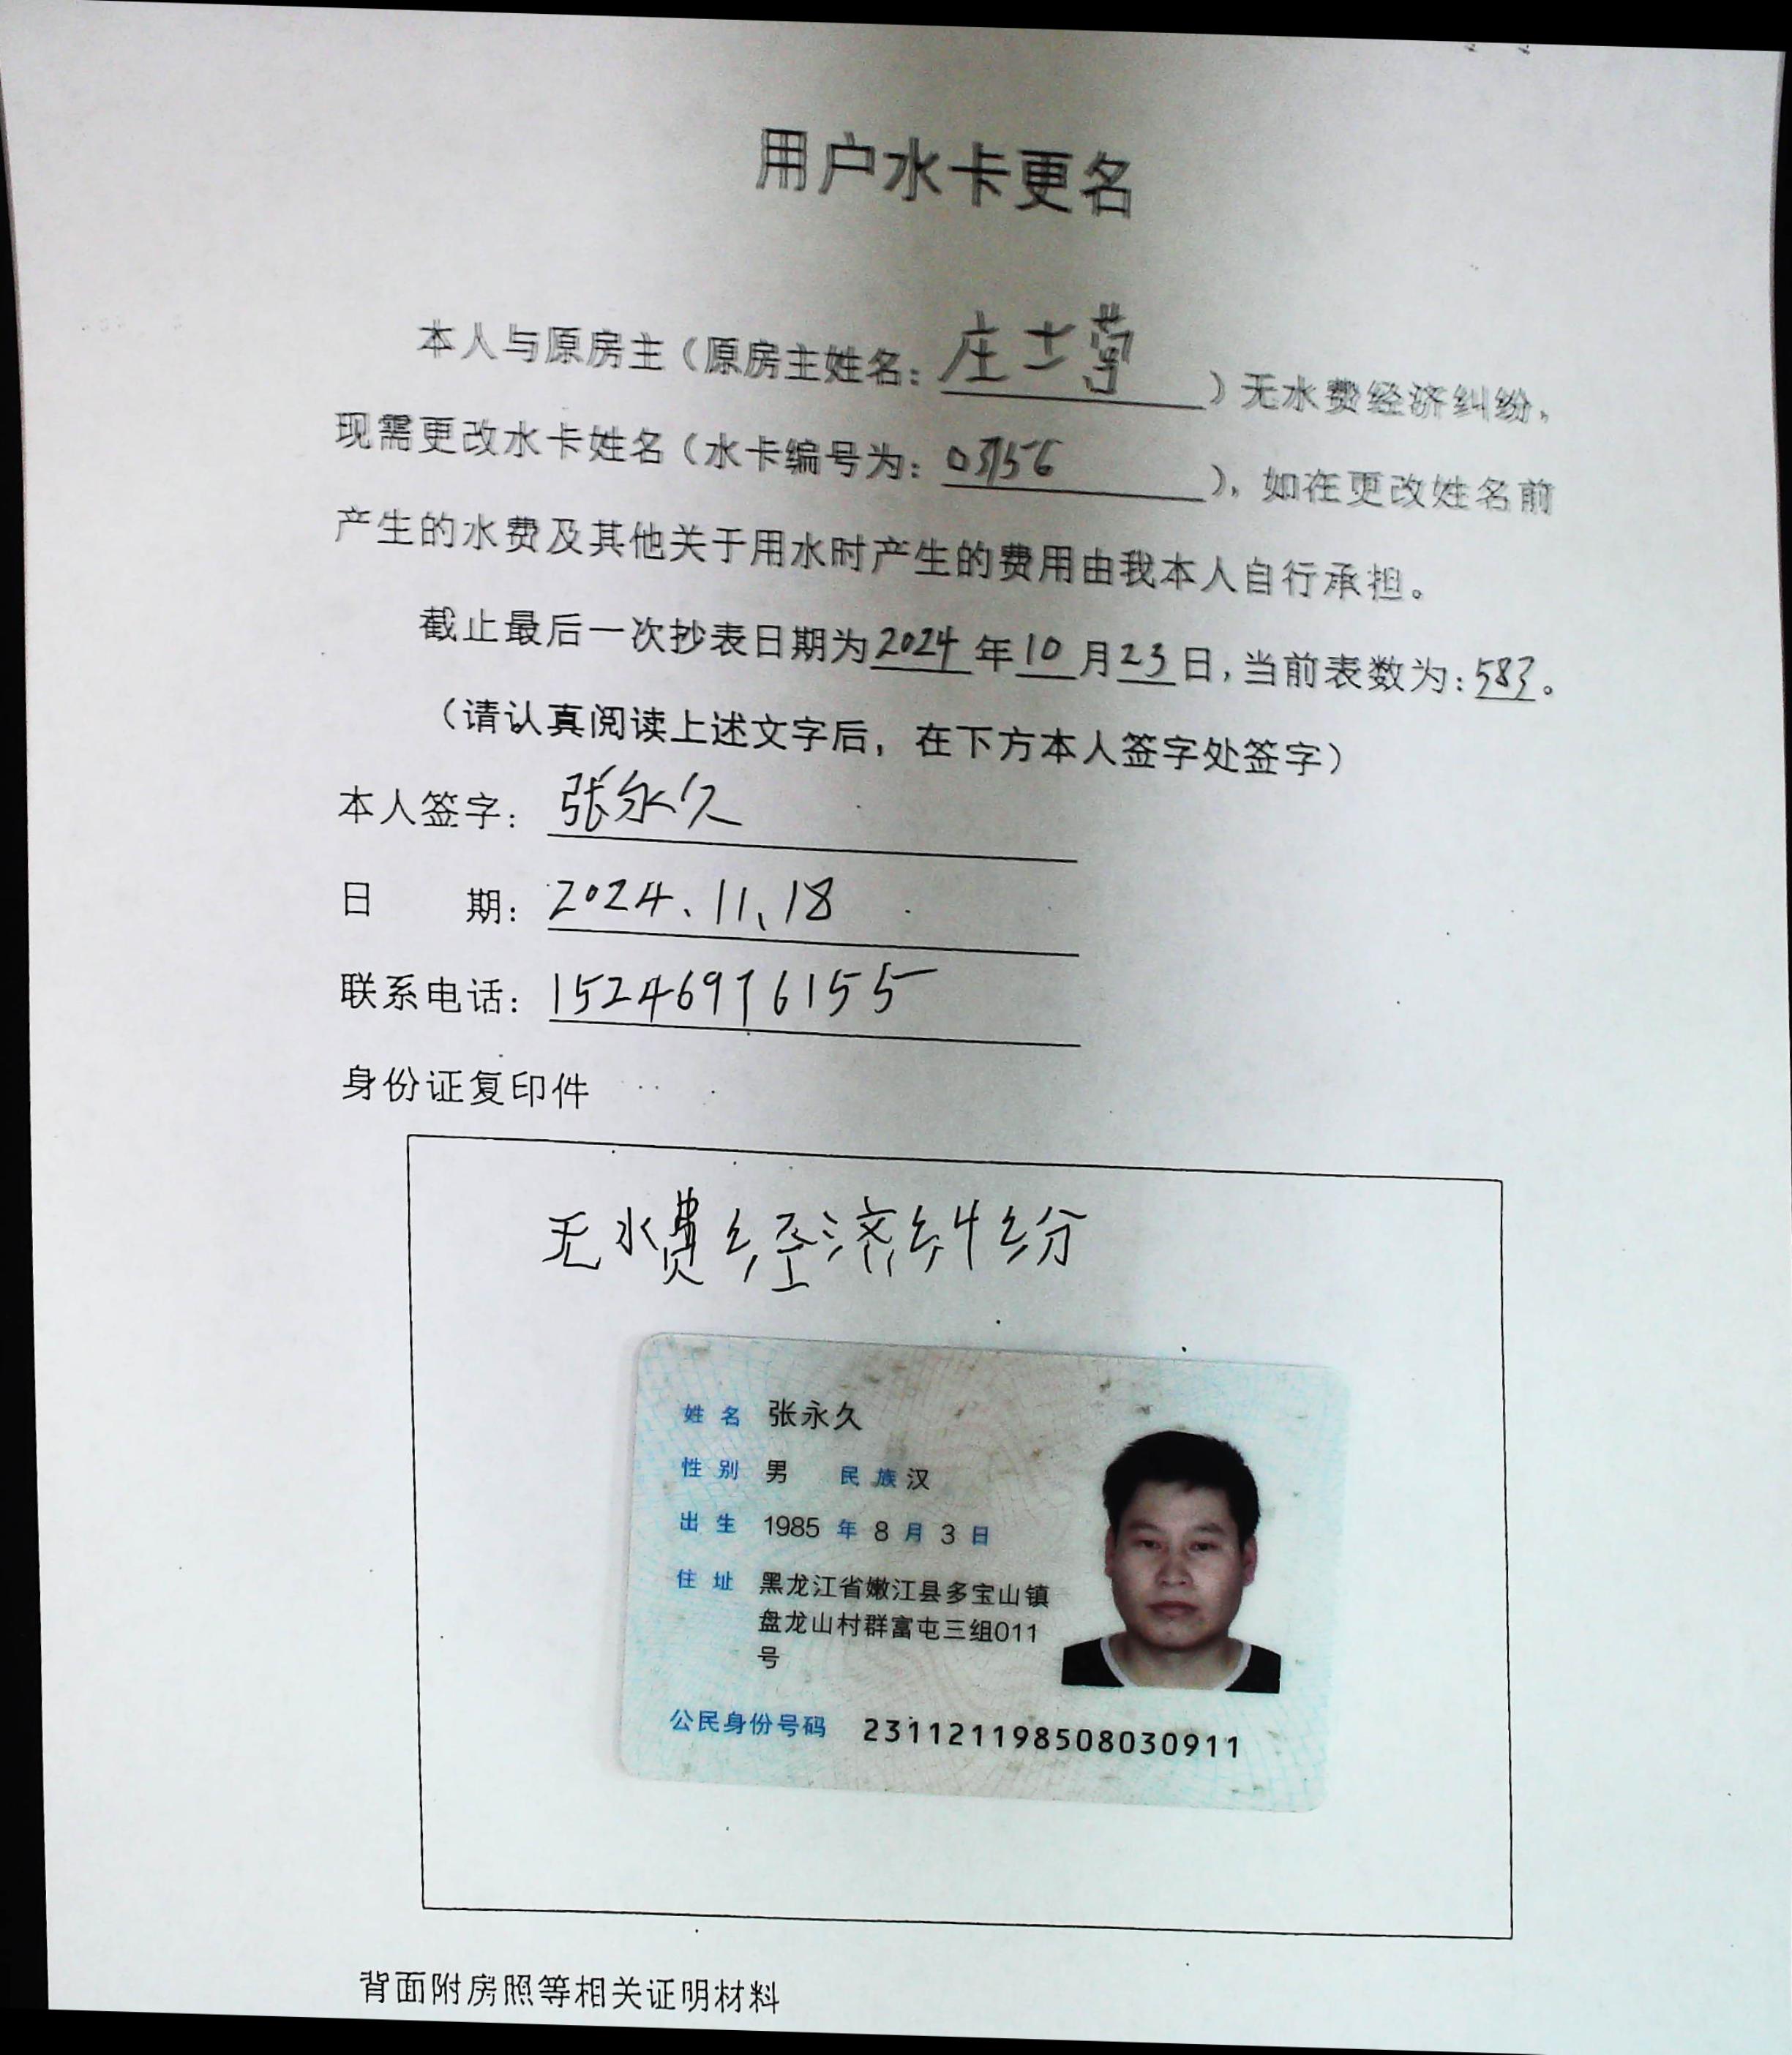 用户水卡更名
本人与原房主（原房主姓名：庄士）无水费经济纠纷，
现需更改水卡姓名（水卡编号为：），如在更改姓名前
产生的水费及其他关于用水时产生的费用由我本人自行承担。
截止最后一次抄表日期为2024年10月23日，当前表数为：583。
（请认真阅读上述文字后，在下方本人签字处签字）
本人签字：张永久
日 期：2024、11、18
联系电话：15246976155
身份证复印件
无水费经济纠纷
姓名 张永久
性别 男 民族 汉
出生 1985年8月3日
住址 黑龙江省嫩江县多宝山镇
盘龙山村群富屯三组011
号
公民身份号码 231121198508030911
背面附房照等相关证明材料